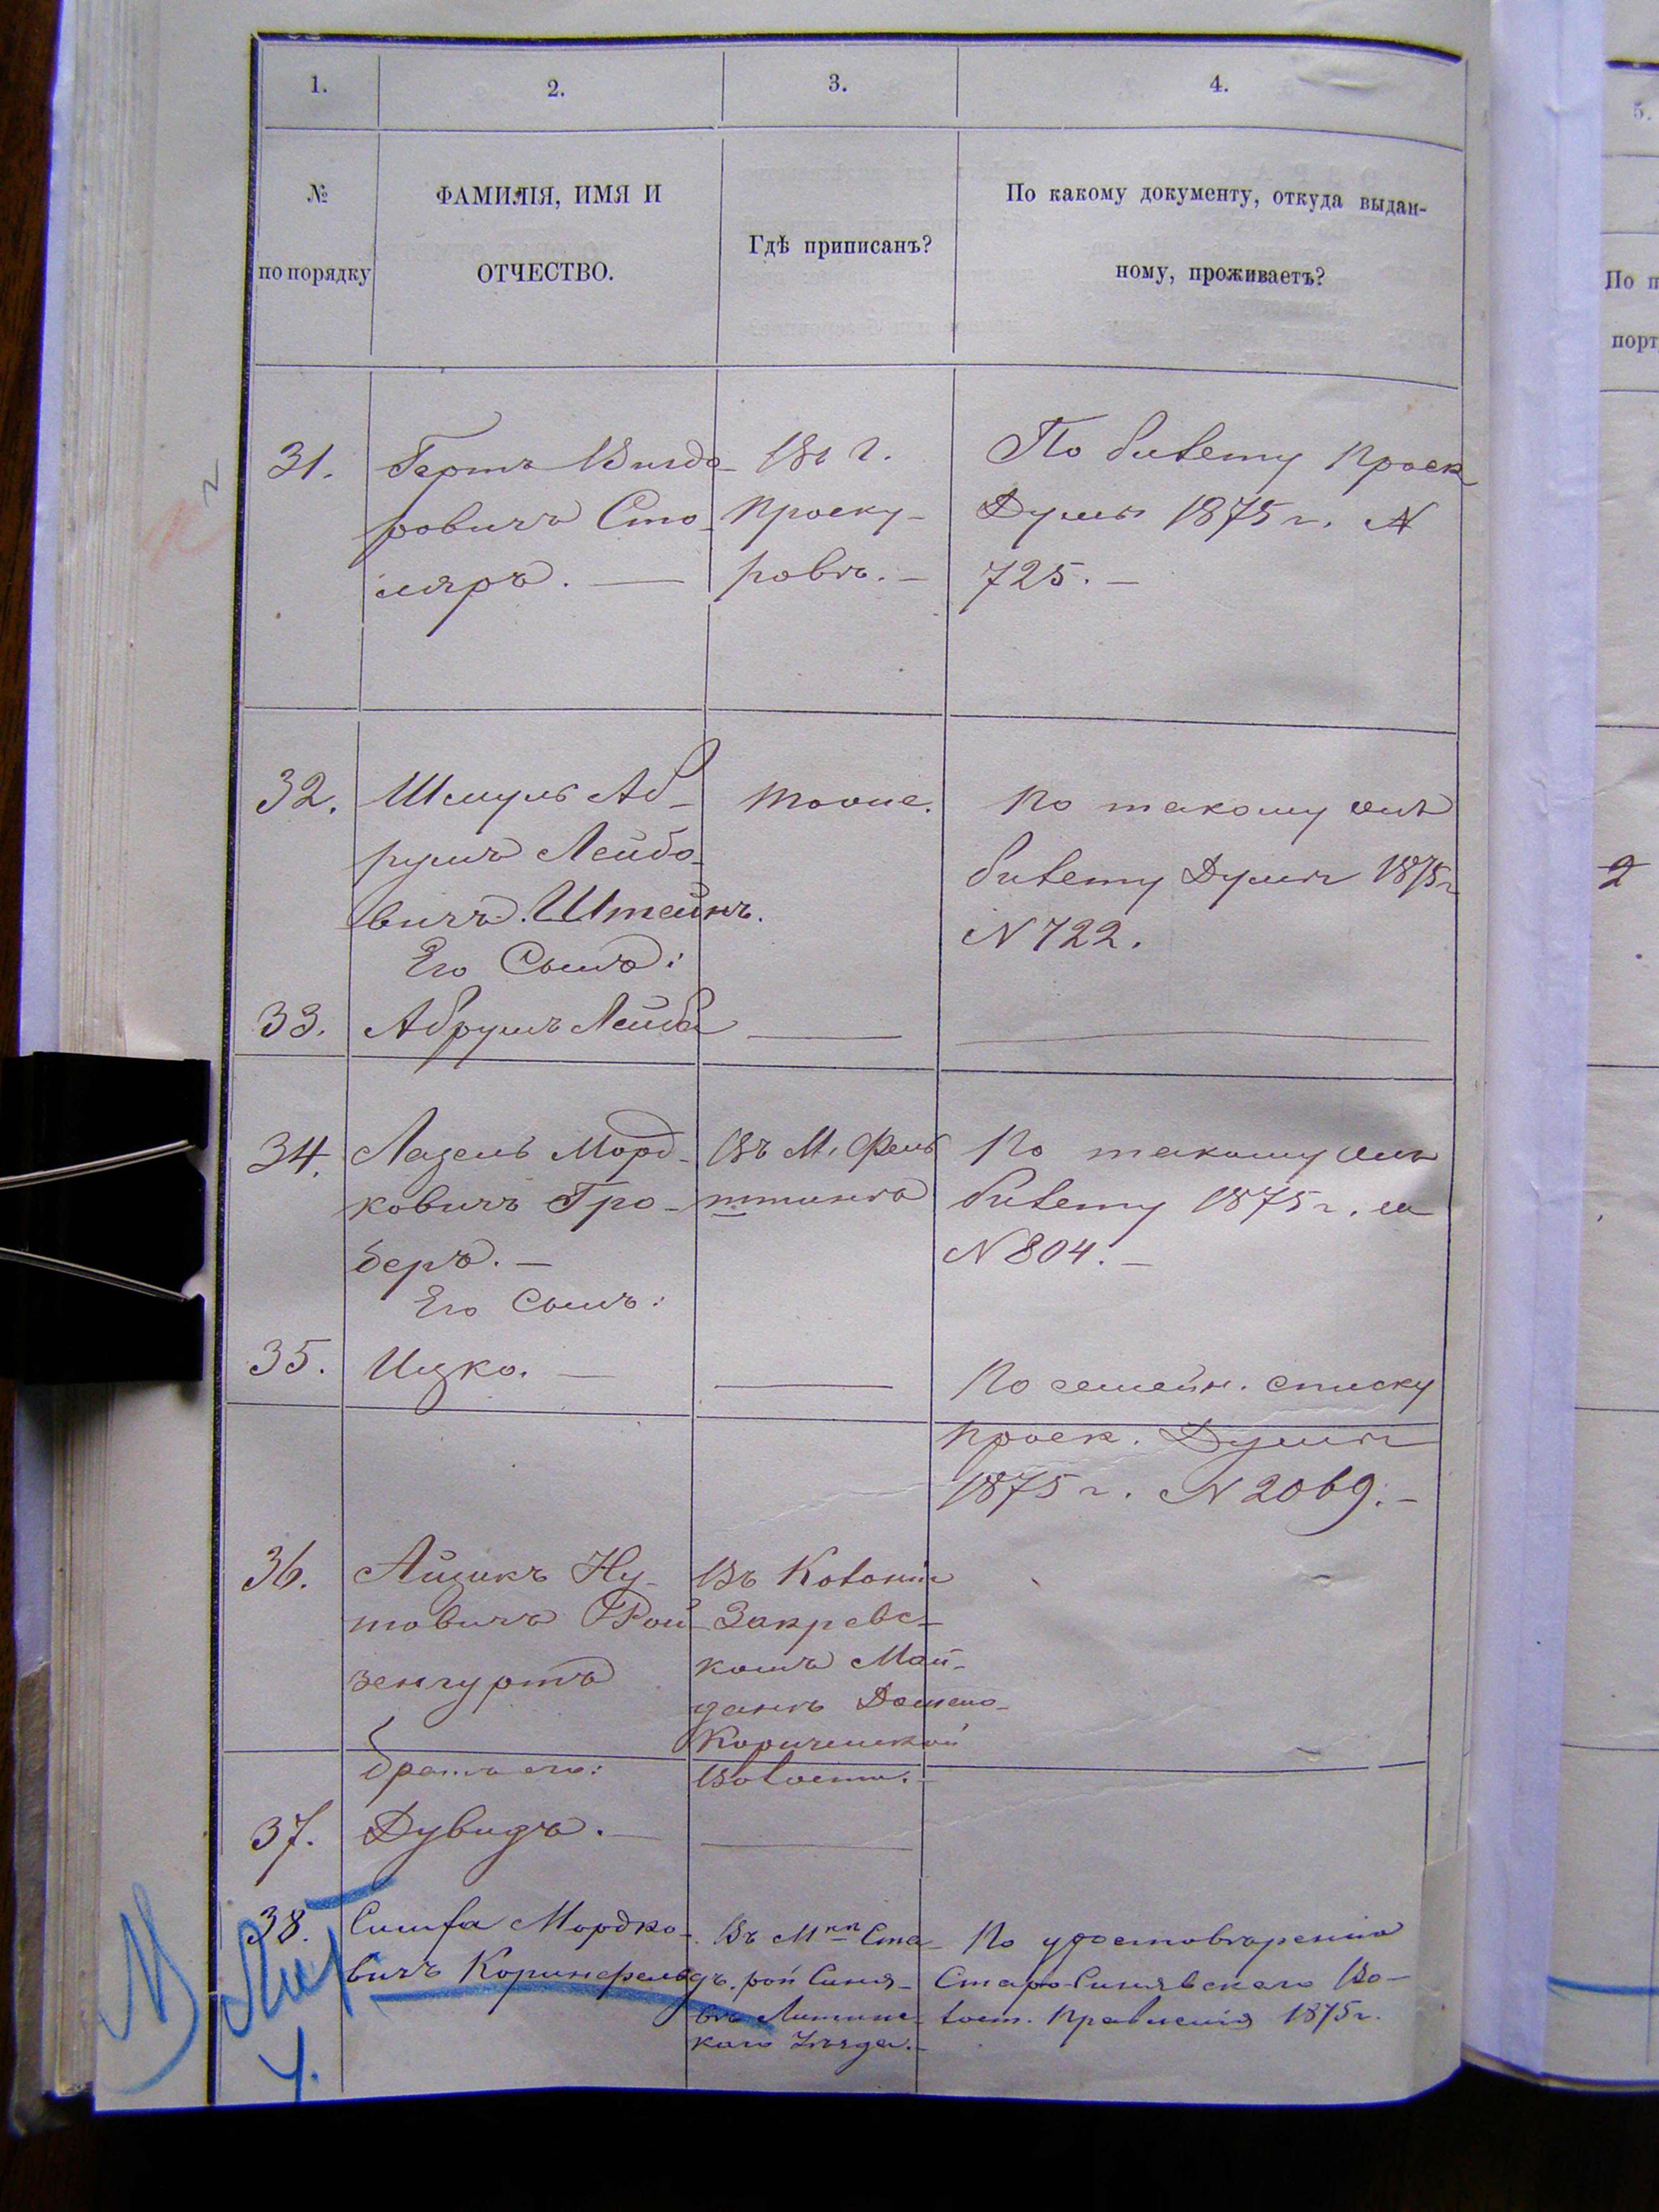 1.
2.
3.
4.
№
по порядку
ФАМИЛІЯ, ИМЯ И
ОТЧЕСТВО.
Гдѣ приписанъ?
По какому документу, откуда выдан-
ному, проживаетъ?
31.
Вигдо-
ровичъ Сто-
ляръ. —
Въ г.
Проску-
ровѣ. —
По билету Проск
Думы 1875 г. №
725. —
32.
Шмуль Аб-
румъ Лейбо-
вичъ Штейнъ.
Его Сынъ:
тоже.
По такому же
билету Думы 1875 г
N 722.
33.
Абрумъ Лейба
34.
Лазель Морд-
ковичъ Гро-
беръ. —
Его Сынъ:
Въ М. Фель
штинѣ
По такому же
билету 1875 г. за
N 804. —
35.
Ицко. —
По семейн. списку
Проск. Думы
1875 г. N 2069. —
36.
Айзикъ Ну-
товичъ Рой
зенгуртъ
братъ его:
Въ Колоніи
Закревс-
комъ Май-
данѣ
Волости. —
37.
Дувидъ. —
38.
Симха Мордко-
вичъ Коринфельдъ.
Въ М-кѣ Ста-
рой Синя-
вѣ Литинс-
каго Уѣзда. —
По удостовѣренію
Старо-Синявскаго Во-
лост. Правленія 1875 г.
Лит
У.
5.
По п
порт
2